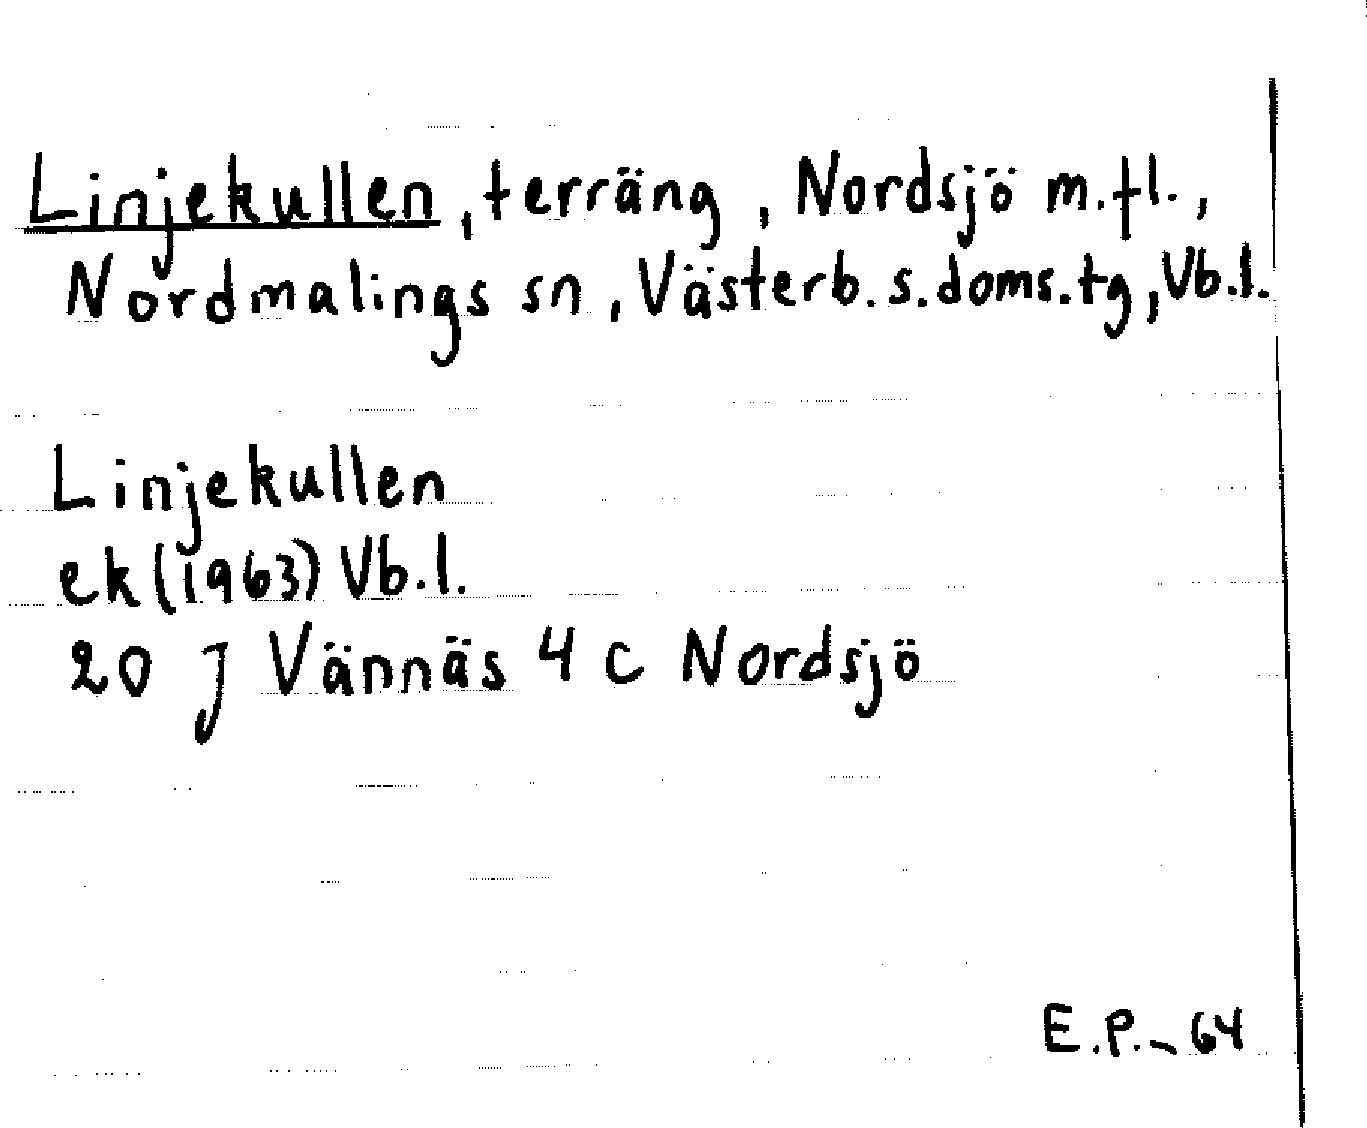 Linjekullen, terräng, Nordsjö m.fl.,
Nordmalings sn, Västerb.s.doms.tg, Vb.l.
Linjekullen
ek (1963) Vb.l.
20 J Vännäs 4 c Nordsjö
E.P.-64